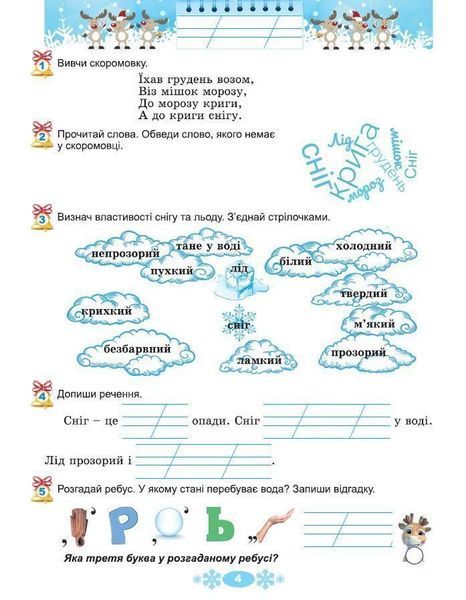 1 Вивчи скоромовку.
Їхав грудень возом,
Віз мішок морозу,
До морозу криги,
А до криги снігу.
2 Прочитай слова. Обведи слово, якого немає
у скоромовці.
Лід
сніг
крига
грудень
мішок
мороз
Сніг
3 Визнач властивості снігу та льоду. З'єднай стрілочками.
непрозорий тане у воді білий холодний
пухкий лід
твердий
крихкий сніг м'який
безбарвний ламкий прозорий
4 Допиши речення.
Сніг – це опади. Сніг у воді.
Лід прозорий і .
5 Розгадай ребус. У якому стані перебуває вода? Запиши відгадку.
, Р , , Ь ,
Яка третя буква у розгаданому ребусі?
4